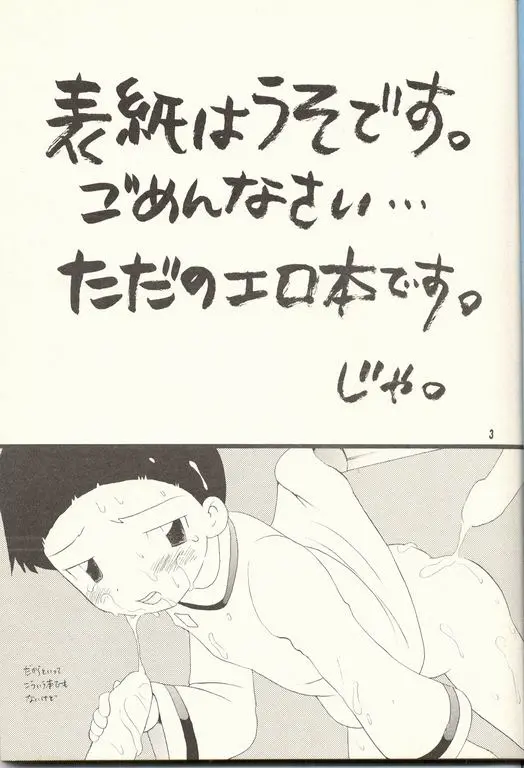 表紙はうそです。
ごめんなさい…
ただのエロ本です。
じゃ。
3
だからといって
こういう本でも
ないけど